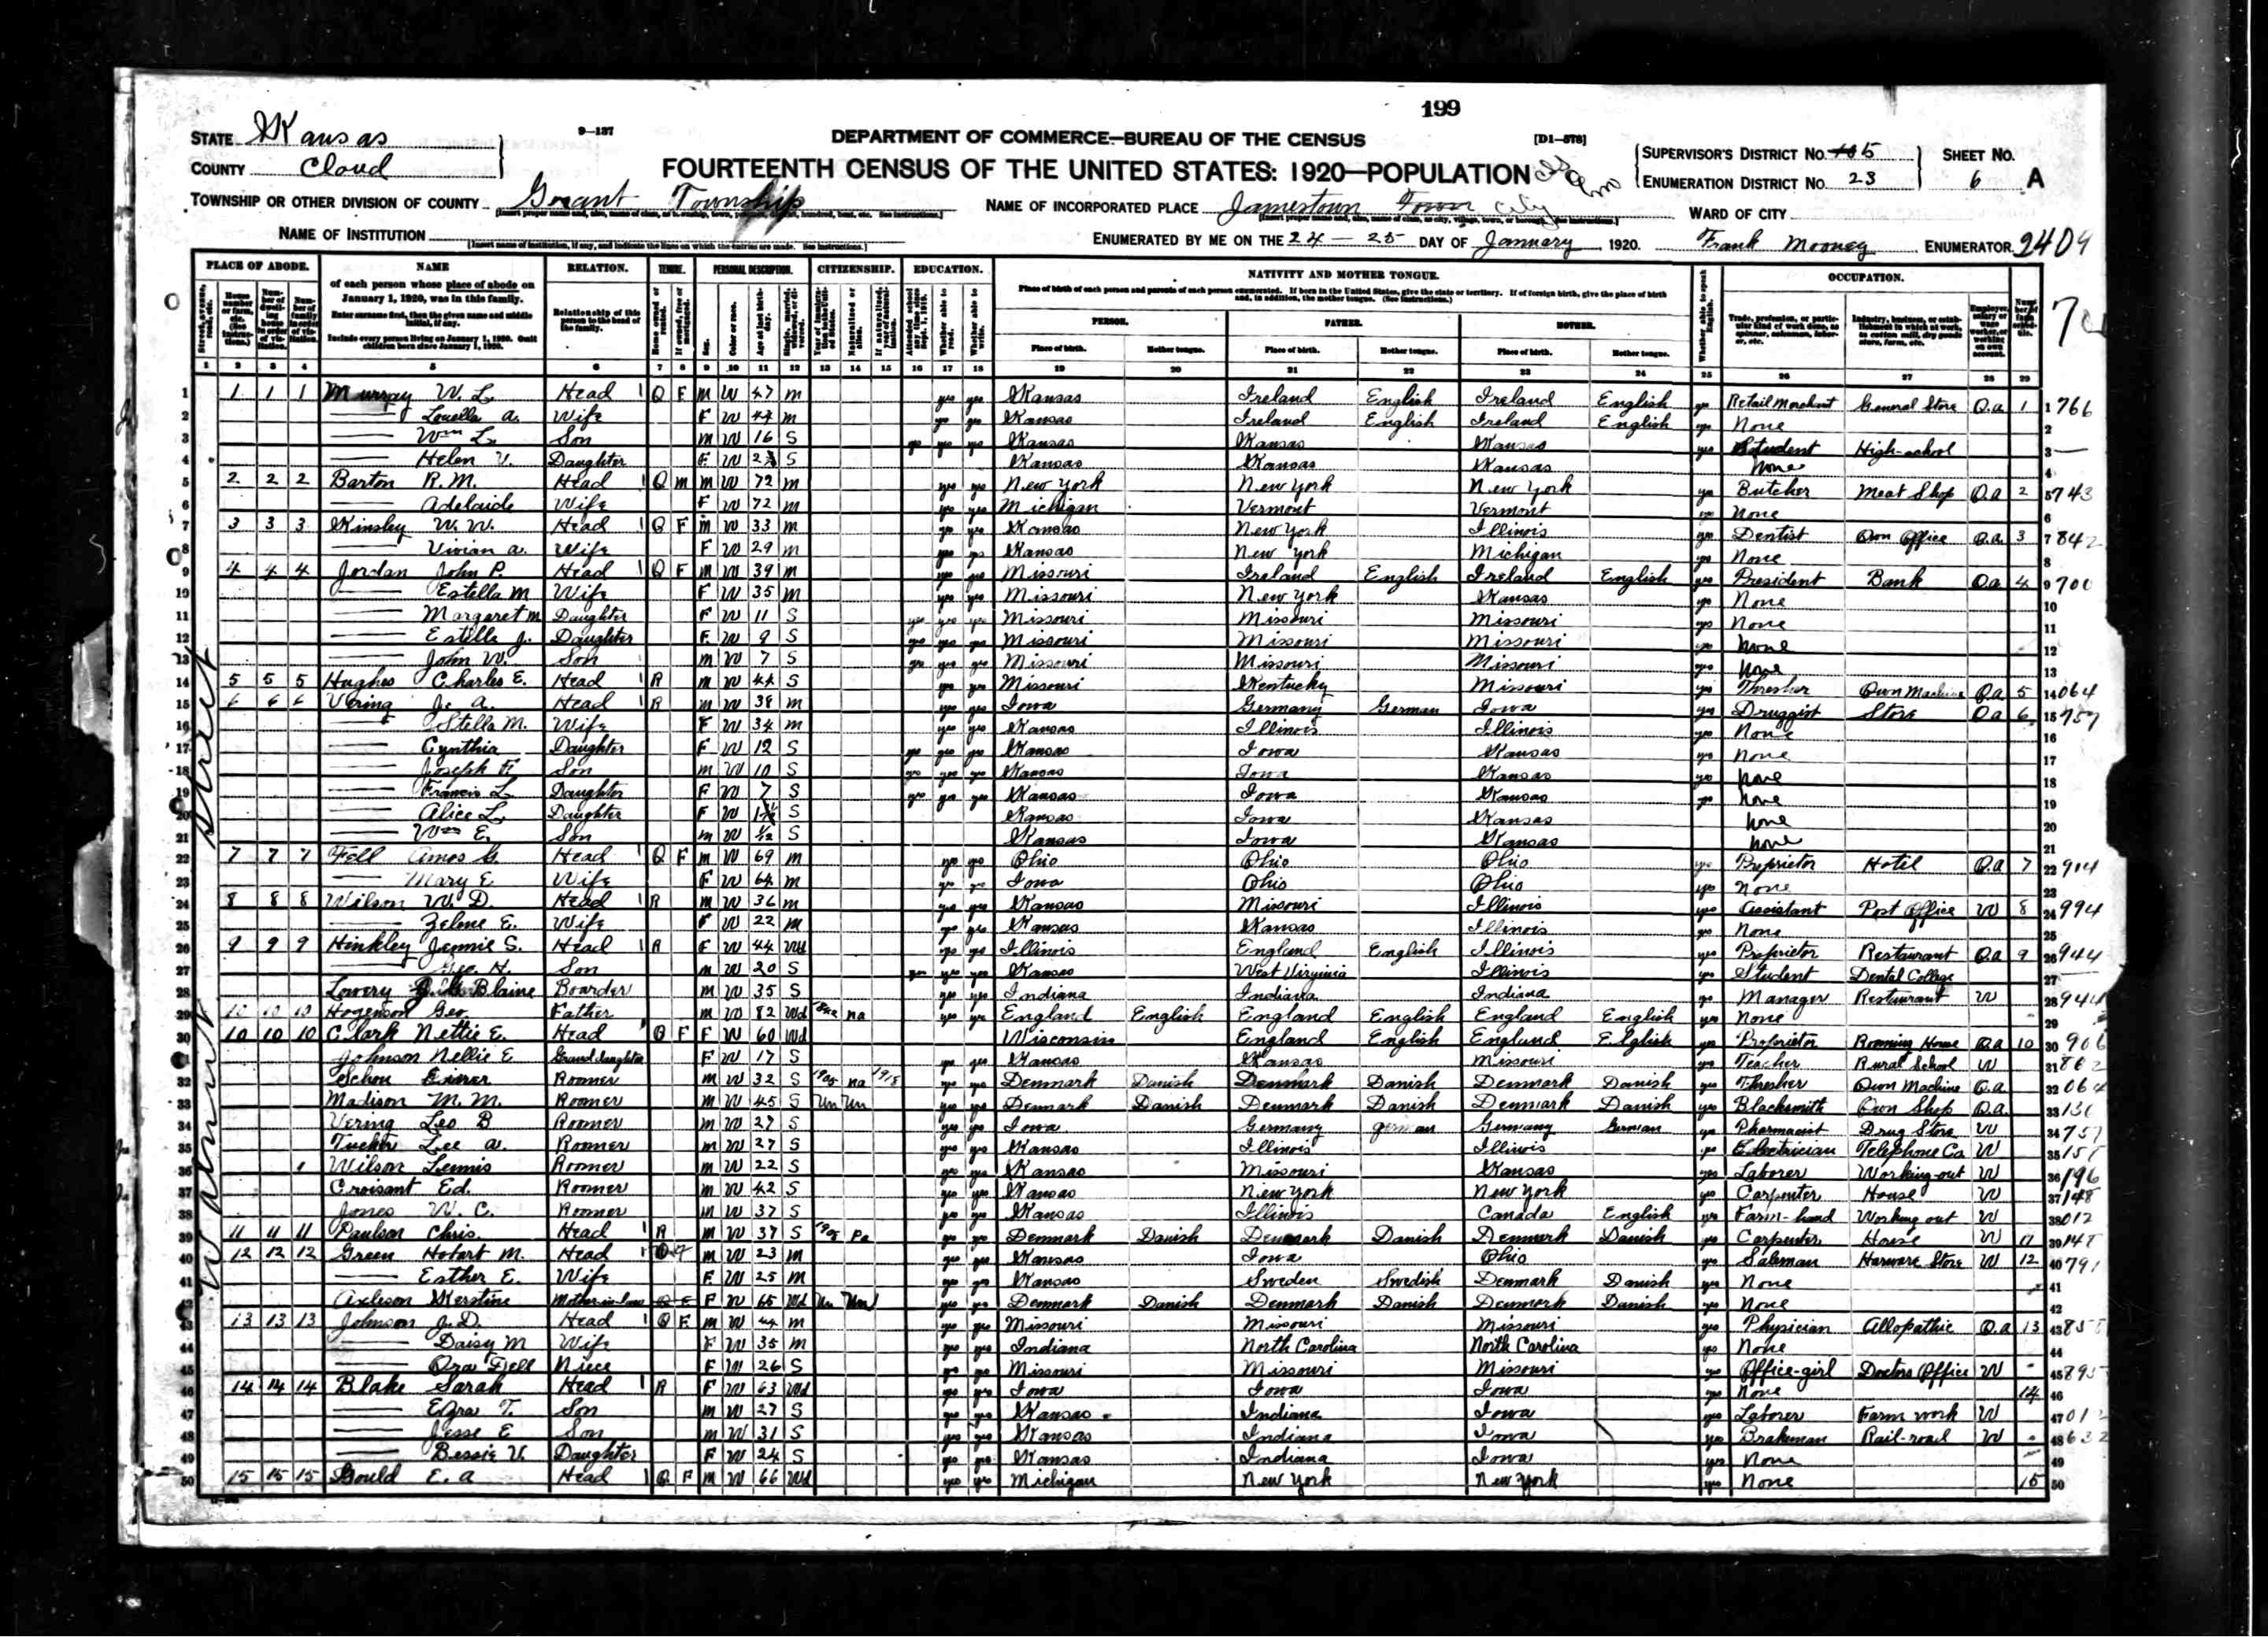 199
STATE Kansas 9—137 DEPARTMENT OF COMMERCE—BUREAU OF THE CENSUS [D1—578] SUPERVISOR'S DISTRICT NO. 5 SHEET NO.
COUNTY Cloud FOURTEENTH CENSUS OF THE UNITED STATES: 1920—POPULATION ENUMERATION DISTRICT NO. 23 6 A
TOWNSHIP OR OTHER DIVISION OF COUNTY Grant Township NAME OF INCORPORATED PLACE Jamestown Town City WARD OF CITY
NAME OF INSTITUTION ENUMERATED BY ME ON THE 24 — 25 DAY OF January, 1920. Frank Mooney ENUMERATOR. 2409
PLACE OF ABODE. NAME RELATION. TENURE. PERSONAL DESCRIPTION. CITIZENSHIP. EDUCATION. NATIVITY AND MOTHER TONGUE. OCCUPATION.
of each person whose place of abode on January 1, 1920, was in this family.
Enter surname first, then the given name and middle initial, if any.
Include every person living on January 1, 1920. Omit children born since January 1, 1920.
Relationship of this person to the head of the family.
Place of birth of each person and parents of each person enumerated. If born in the United States, give the state or territory. If of foreign birth, give the place of birth and, in addition, the mother tongue. (See instructions.)
PERSON. FATHER. MOTHER.
Place of birth. Mother tongue. Place of birth. Mother tongue. Place of birth. Mother tongue.
1 2 3 4 5 6 7 8 9 10 11 12 13 14 15 16 17 18 19 20 21 22 23 24 25 26 27 28 29
Walnut Street
1 1 1 1 Murray W. L. Head O F M W 47 M yes yes Kansas Ireland English Ireland English yes Retail Merchant General Store O.a 1 1 766
2 — Louella A. Wife F W 44 M yes yes Kansas Ireland English Ireland English yes None 2
3 — Wm L. Son M W 16 S yes yes yes Kansas Kansas Kansas yes Student High-school 3 —
4 — Helen V. Daughter F W S Kansas Kansas Kansas None 4
5 2 2 2 Barton R. M. Head O M M W 72 M yes yes New York New York New York yes Butcher Meat Shop O.a 2 5 743
6 — Adelaide Wife F W 72 M yes yes Michigan Vermont Vermont yes None 6
7 3 3 3 Kinsley W. W. Head O F M W 33 M yes yes Kansas New York Illinois yes Dentist Own Office O.a. 3 7 842
8 — Vivian A. Wife F W 29 M yes yes Kansas New York Michigan yes None 8
9 4 4 4 Jordan John P. Head O F M W 39 M yes yes Missouri Ireland English Ireland English yes President Bank O.a 4 9 700
10 — Estella M Wife F W 35 M yes yes Missouri New York Kansas yes None 10
11 — Margaret M Daughter F W 11 S yes yes yes Missouri Missouri Missouri yes None 11
12 — Estella J. Daughter F W 9 S yes yes yes Missouri Missouri Missouri yes None 12
13 — John W. Son M W 7 S yes yes yes Missouri Missouri Missouri yes None 13
14 5 5 5 Hughes Charles E. Head R M W 44 S yes yes Missouri Kentucky Missouri yes Thresher Own Machine O.a 5 14 064
15 6 6 6 Vering J. A. Head R M W 38 M yes yes Iowa Germany German Iowa yes Druggist Store O a 6 15 757
16 — Stella M. Wife F W 34 M yes yes Kansas Illinois Illinois yes None 16
17 — Cynthia Daughter F W 12 S yes yes yes Kansas Iowa Kansas yes None 17
18 — Joseph F. Son M W 10 S yes yes yes Kansas Iowa Kansas yes None 18
19 — Francis L Daughter F W 7 S yes yes yes Kansas Iowa Kansas yes None 19
20 — Alice L. Daughter F W S Kansas Iowa Kansas None 20
21 — Wm E. Son M W S Kansas Iowa Kansas None 21
22 7 7 7 Fell Amos G. Head O F M W 69 M yes yes Ohio Ohio Ohio yes Proprietor Hotel O.a 7 22 914
23 — Mary E Wife F W 64 M yes yes Iowa Ohio Ohio yes None 23
24 8 8 8 Wilson W. D. Head R M W 36 M yes yes Kansas Missouri Illinois yes Assistant Post Office W 8 24 994
25 — Zelme E. Wife F W 22 M yes yes Kansas Kansas Illinois yes None 25
26 9 9 9 Hinkley Jennie S. Head R F W 44 Wd yes yes Illinois England English Illinois yes Proprietor Restaurant O.a 9 26 944
27 — Geo. H. Son M W 20 S yes yes yes Kansas West Virginia Illinois yes Student Dental College 27 —
28 Lowery Blaine Boarder M W 35 S yes yes Indiana Indiana Indiana yes Manager Restaurant W 28 944
29 10 10 10 Hogenson Geo. Father M W 82 Wd na yes yes England English England English England English yes None 29
30 10 10 10 Clark Nettie E. Head O F F W 60 Wd Wisconsin England English England English yes Proprietor Rooming House O.a 10 30 906
31 Johnson Nellie E Grand daughter F W 17 S yes yes Kansas Kansas Missouri yes Teacher Rural School W 31 862
32 Schou Einer Roomer M W 32 S 1905 na 1918 yes yes Denmark Danish Denmark Danish Denmark Danish yes Thresher Own Machine O.a 32 064
33 Madison M. M. Roomer M W 45 S Un Un yes yes Denmark Danish Denmark Danish Denmark Danish yes Blacksmith Own Shop O.a. 33 130
34 Vering Leo B Roomer M W 27 S yes yes Iowa Germany German Germany German yes Pharmacist Drug Store W 34 757
35 Tucker Lee A. Roomer M W 27 S yes yes Kansas Illinois Illinois yes Electrician Telephone Co W 35
36 Wilson Lennis Roomer M W 22 S yes yes Kansas Missouri Kansas yes Laborer Working-out W 36 196
37 Croisant Ed. Roomer M W 42 S yes yes Kansas New York New York yes Carpenter House W 37 148
38 Jones W. C. Roomer M W 37 S yes yes Kansas Illinois Canada English yes Farm-hand Working out W 38 012
39 11 11 11 Paulson Chris. Head R M W 37 S Pa yes yes Denmark Danish Denmark Danish Denmark Danish yes Carpenter House W 11 39 148
40 12 12 12 Green Hobart M. Head M W 23 M yes yes Kansas Iowa Ohio yes Saleman Harware Store W 12 40 791
41 — Esther E. Wife F W 25 M yes yes Kansas Sweden Swedish Denmark Danish yes None 41
42 Axleson Kerstine Mother-in-law F W 65 Wd Un Un yes yes Denmark Danish Denmark Danish Denmark Danish yes None 42
43 13 13 13 Johnson J. D. Head O F M W 44 M yes yes Missouri Missouri Missouri yes Physician Allopathic O.a 13 43 858
44 — Daisy M Wife F W 35 M yes yes Indiana North Carolina North Carolina yes None 44
45 — Ora Dell Niece F W 26 S yes yes Missouri Missouri Missouri yes Office-girl Doctors Office W 45 895
46 14 14 14 Blake Sarah Head R F W 63 Wd yes yes Iowa Iowa Iowa yes None 14 46
47 — Ezra T. Son M W 27 S yes yes Kansas Indiana Iowa yes Laborer Farm work W 47 012
48 — Jesse E Son M W 31 S yes yes Kansas Indiana Iowa yes Brakeman Rail-road W 48 632
49 — Bessie V. Daughter F W 24 S yes yes Kansas Indiana Iowa yes None 49
50 15 15 15 Gould E. A Head O F M W 66 Wd yes yes Michigan New York New York yes None 15 50